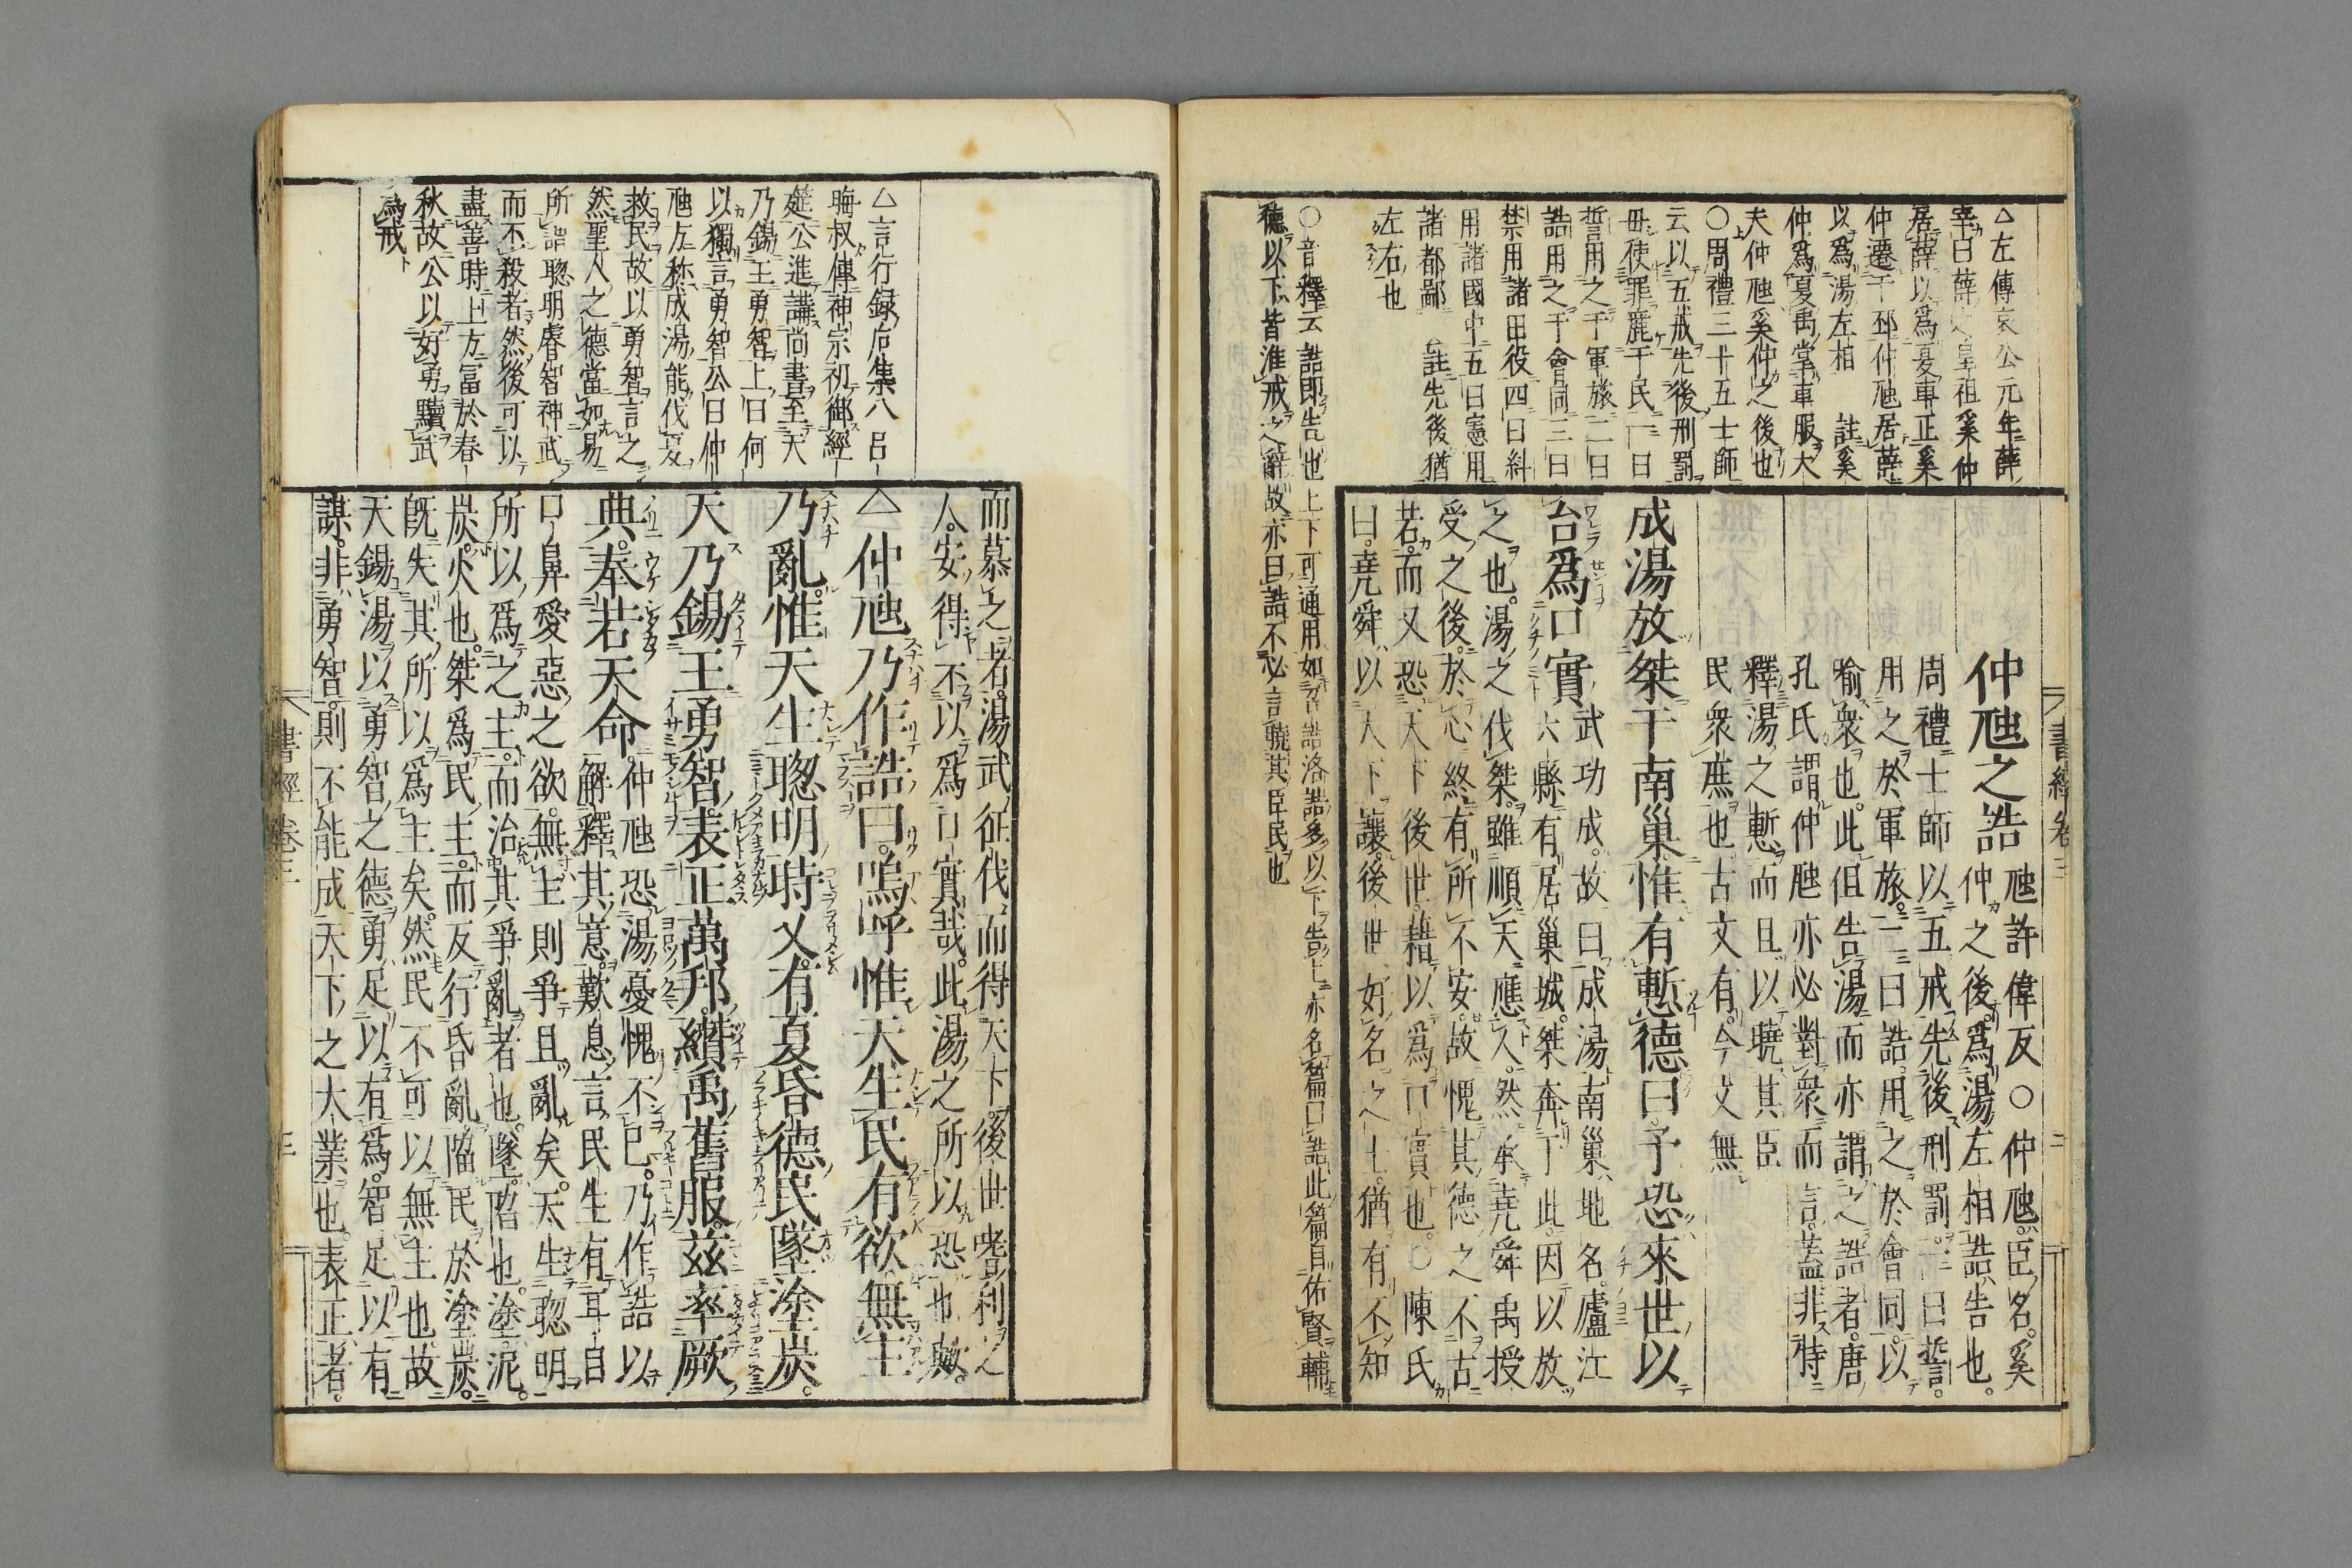 △左傳哀公元年薛
宰曰薛之皇祖奚仲
居薛以爲夏車正奚
仲遷于邳仲虺居薛
以爲湯左相 註奚
仲爲夏禹掌車服大
夫仲虺奚仲之後也
○周禮三十五士師
云以五戒先後刑罰
毋使罪麗于民一曰
誓用之于軍旅二曰
誥用之于會同三曰
禁用諸田役四曰糾
用諸國中五曰憲用
諸都鄙 註先後猶
左右也
○音釋云誥即告也上下可通用如召誥洛誥多以下告上亦名篇曰誥此篇自佑賢輔
德以下皆准戒之辭故亦曰誥不必言曉其臣民也
仲虺之誥
虺許偉反○仲虺臣名奚
仲之後爲湯左相誥告也
周禮士師以五戒先後刑罰一曰誓
用之於軍旅二曰誥用之於會同以
喻衆也此但告湯而亦謂之誥者唐
孔氏謂仲虺亦必對衆而言蓋非特
釋湯之慙而且以曉其臣
民衆庶也古文有今文無
成湯放桀于南巢惟有慙德曰予恐來世以
台爲口實
武功成故曰成湯南巢地名廬江
六縣有居巢城桀奔于此因以放
之也湯之伐桀雖順天應人然承堯舜禹授
受之後於心終有所不安故愧其德之不古
若而又恐天下後世藉以爲口實也○陳氏
曰堯舜以天下讓後世好名之士猶有不知
書經卷三 二
△言行録后集八呂
晦叔傳神宗初御經
筵公進講尚書至天
乃錫王勇智上曰何
以獨言勇智公曰仲
虺方称成湯能伐夏
救民故以勇智言之
然聖人之德當如易
所謂聰明睿智神武
而不殺者然後可以
盡善時上方富於春
秋故公以好勇黷武
爲戒
而慕之者湯武征伐而得天下後世嗜利之
人安得不以爲口實哉此湯之所以恐也歟
△仲虺乃作誥曰嗚呼惟天生民有欲無主
乃亂惟天生聰明時乂有夏昏德民墜塗炭
天乃錫王勇智表正萬邦纘禹舊服茲率厥
典奉若天命
仲虺恐湯憂愧不已乃作誥以
解釋其意歎息言民生有耳目
口鼻愛惡之欲無主則爭且亂矣天生聰明
所以爲之主而治其爭亂者也墜陷也塗泥
炭火也桀爲民主而反行昏亂陷民於塗炭
既失其所以爲主矣然民不可以無主也故
天錫湯以勇智之德勇足以有爲智足以有
謀非勇智則不能成天下之大業也表正者
書經卷三 三